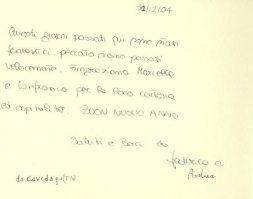 31/12/04
Questi giorni passati qui sono stati
fantastici, peccato siano passati
velocemente. Ringraziamo Marcello
e Gianfranco per la loro cortesia
ed ospitalità. BUON NUOVO ANNO
Saluti e Baci da
Federico e
Andrea
da Cavedago (TN)